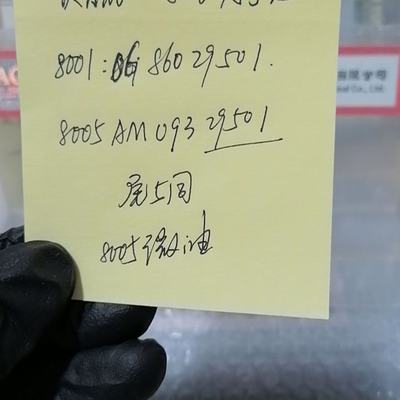 8001:06 86029501.
8005 AM 093 29501
尾5同
8005微油
有限公司
Co., Ltd.